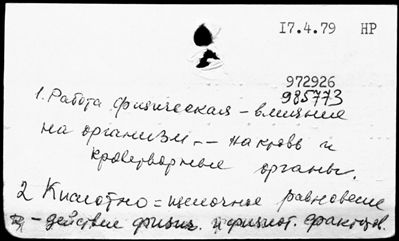 I7.4.79 НР
972926
985773
1. Работа физическая - влияние
на организм -- на кровь и
кроветворные органы.
2 Кислотно = щелочное равновесие
- действие физич. и физиот. факторов.